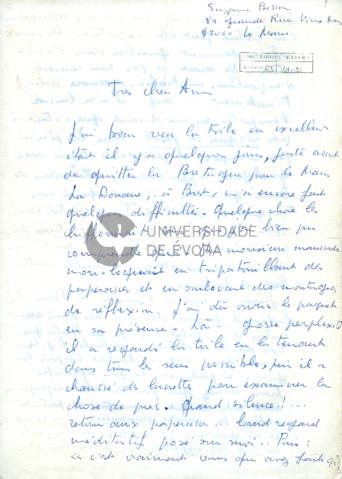 Suzanne
Grande Rue
72000 Le Mans
Très cher Ami
J'ai bien reçu la toile en excellent
état il y a quelques jours, juste avant
de quitter la Bretagne pour le Mans
La Douane, à Brest, m'a encore fait
quelques difficultés. Quelque chose les
bien pu
comprendre monsieur
UNIVERSIDADE
DE ÉVORA
monologuait en tripatouillant des
paperasses et en soulevant des montagnes
de réflexion. J'ai dû ouvrir le paquet
en sa présence. Là - grosse perplexité
il a regardé la toile en la tenant
dans tous les sens possibles, puis il a
chaussé des lunettes pour examiner la
chose de près. Grand silence !...
retour aux paperasses - lourd regard
méditatif posé sur moi.. Puis :
"c'est vraiment vous qui avez fait